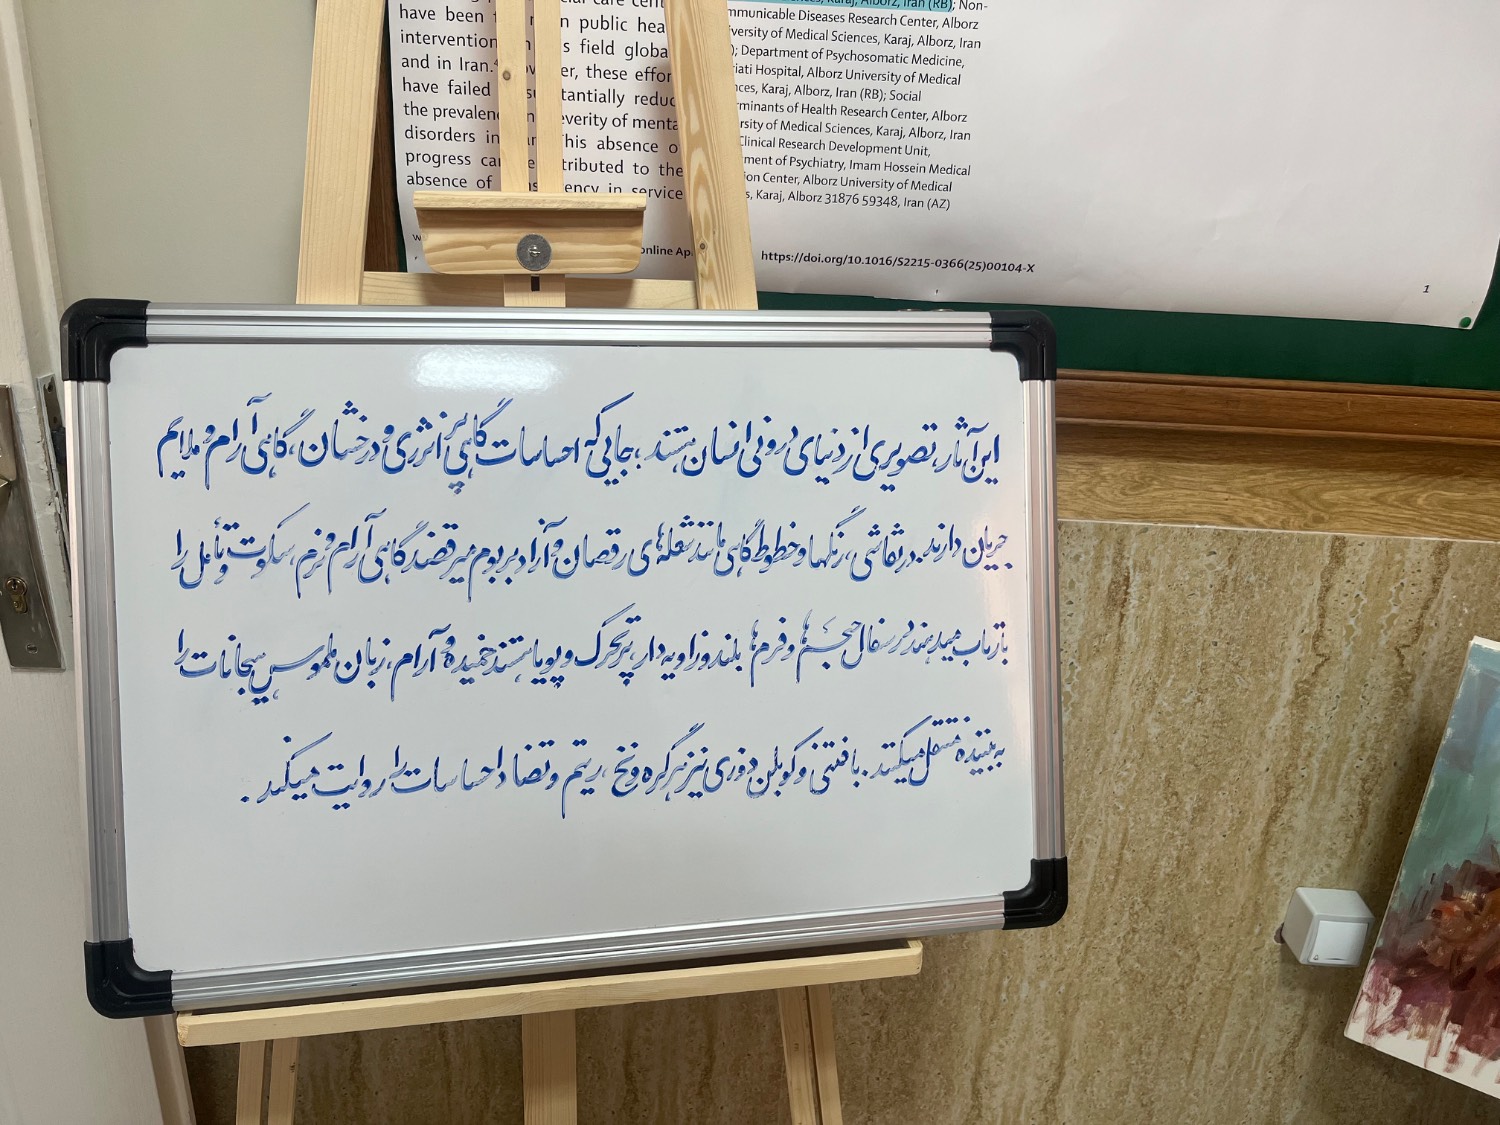 have been public hea
intervention s field globa
and in Iran. er, these effor
have failed su tantially reduc
the prevalenc everity of menta
disorders in an This absence o
progress ca e tributed to the
absence of ns ency in service
online Ap
nces, Karaj, Alborz, Iran (RB); Non-
mmunicable Diseases Research Center, Alborz
versity of Medical Sciences, Karaj, Alborz, Iran
); Department of Psychosomatic Medicine,
riati Hospital, Alborz University of Medical
nces, Karaj, Alborz, Iran (RB); Social
rminants of Health Research Center, Alborz
rsity of Medical Sciences, Karaj, Alborz, Iran
Clinical Research Development Unit,
ment of Psychiatry, Imam Hossein Medical
ion Center, Alborz University of Medical
s, Karaj, Alborz 31876 59348, Iran (AZ)
https://doi.org/10.1016/S2215-0366(25)00104-X
1
این آثار، تصویری از دنیای درونی انسان هستند؛ جایی که احساسات گاهی پر انرژی و درخشان، گاهی آرام و ملایم
جریان دارند. در نقاشی، رنگها و خطوط گاهی مانند شعله‌های رقصان و آزاد بر بوم میرقصند گاهی آرام و نرم، سکوت و تأمل را
بازتاب میدهند در سفال حجم‌ها و فرم‌ها بلند و زاویه‌دار، پرتحرک و پویا هستند خمیده و آرام، زبان ملموس هیجانات را
به بیننده منتقل میکنند. بافتنی و کوبلن دوزی نیز هر گره و نخ، ریتم و تضاد احساسات را روایت میکند.